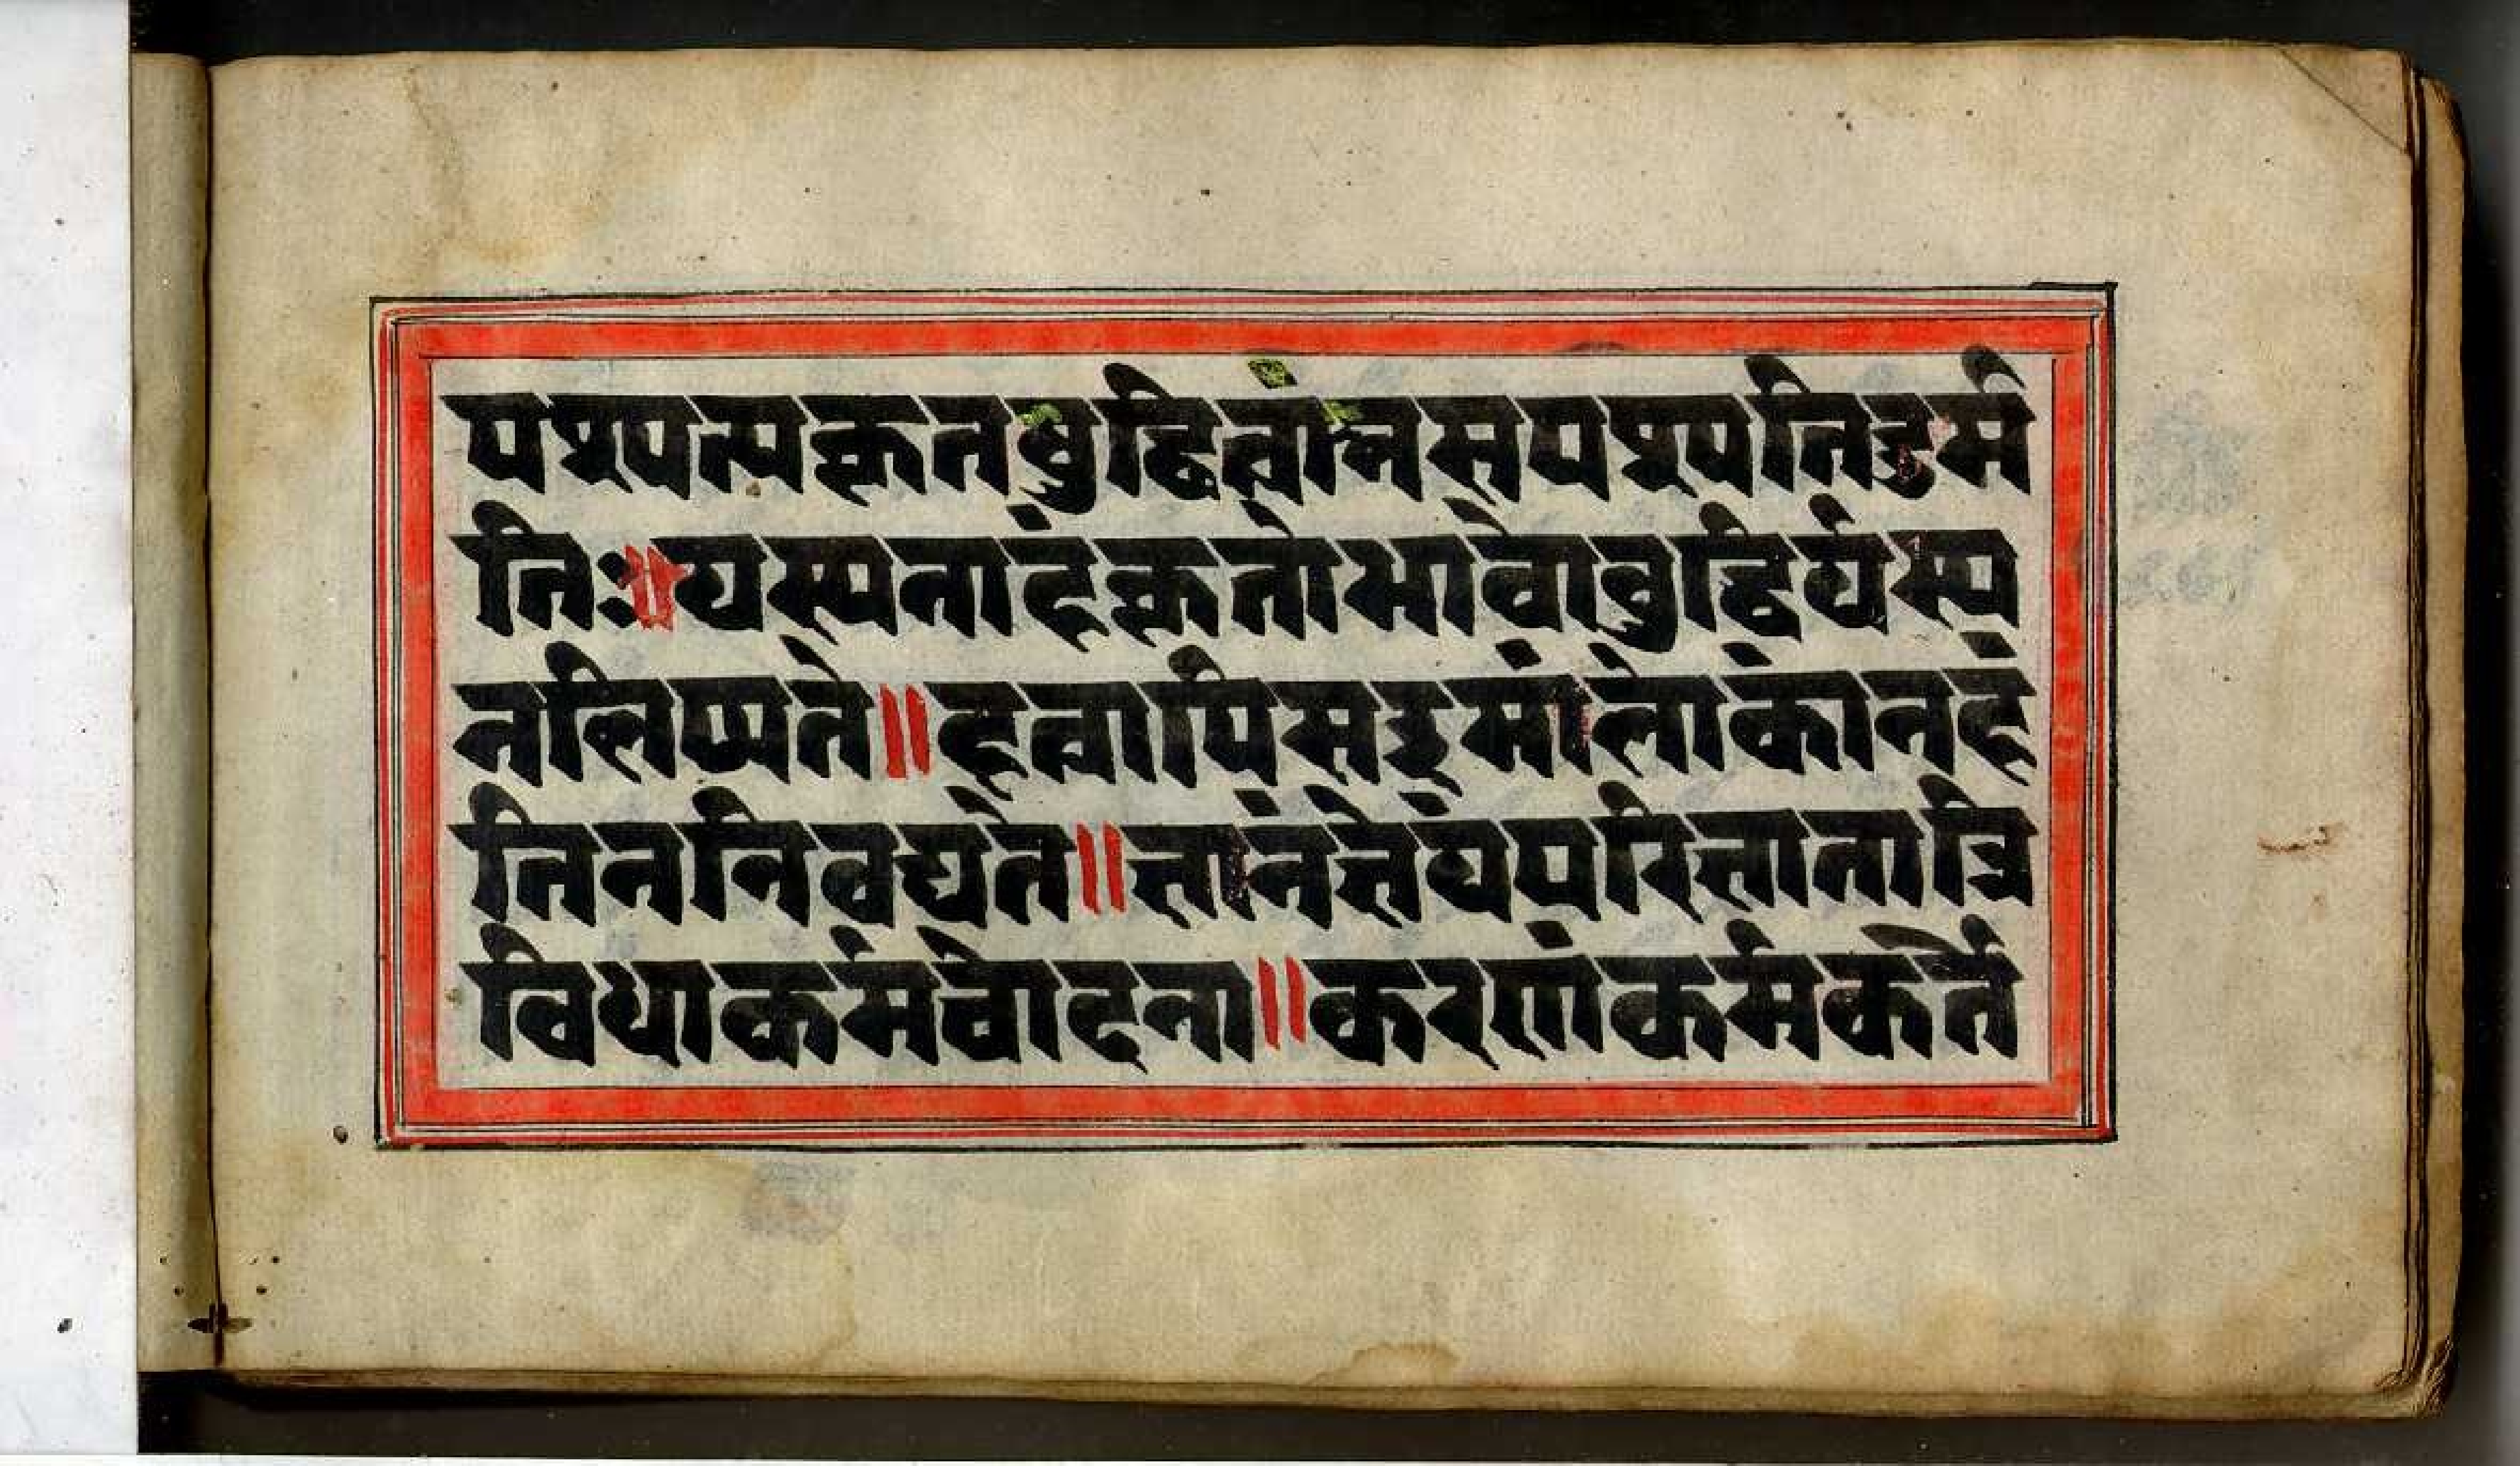 पश्यत्यकृतबुद्धित्वान्नसपश्यतिदुर्म
तिः॥यस्यनाहंकृतोभावोबुद्धिर्यस्य
नलिप्यते॥हत्वापिसइमांलोकांनहं
तिननिवध्यते॥ज्ञानंज्ञेयंपरिज्ञातात्रि
विधाकर्मचोदना॥करणंकर्मकर्ते